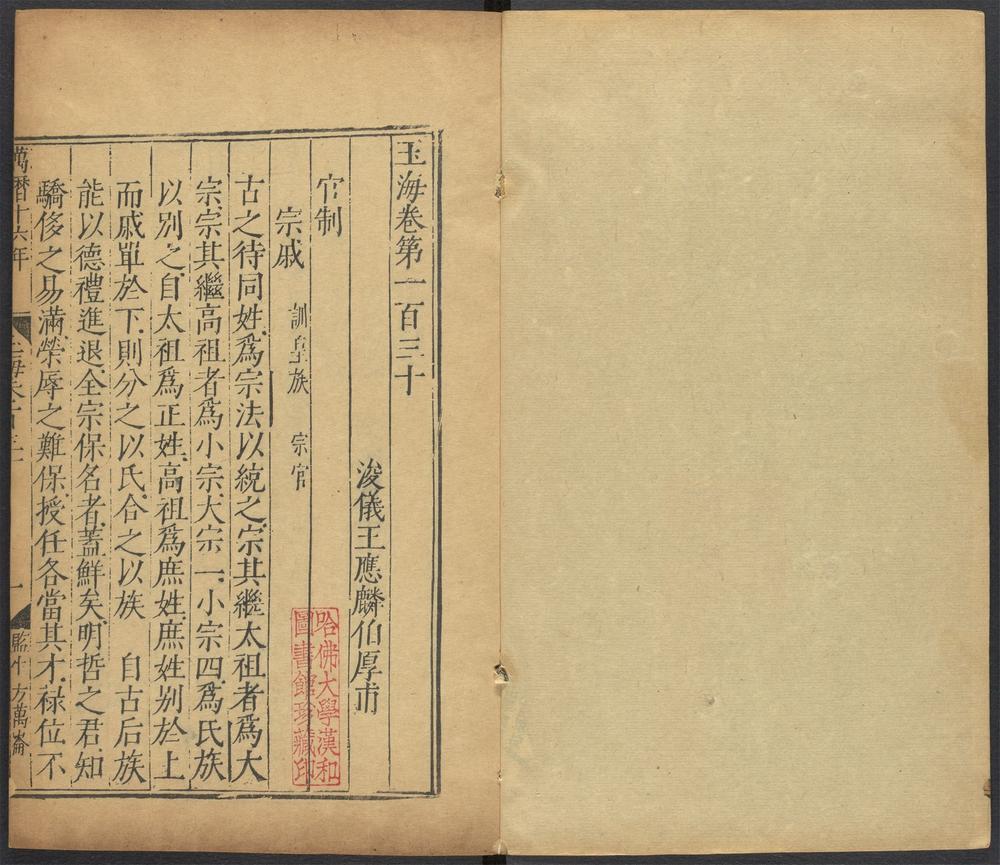 玉海卷第一百三十
浚儀王應麟伯厚甫
官制
宗戚 訓皇族 宗官
古之待同姓爲宗法以統之宗其繼太祖者爲大
宗宗其繼高祖者爲小宗大宗一小宗四爲氏族
以别之自太祖爲正姓高祖爲庶姓庶姓别於上
而戚單於下則分之以氏合之以族 自古后族
能以德禮進退全宗保名者蓋鮮矣明哲之君知
驕侈之易滿榮辱之難保授任各當其才祿位不
萬曆十六年
一
哈佛大學漢和
圖書館珍藏印